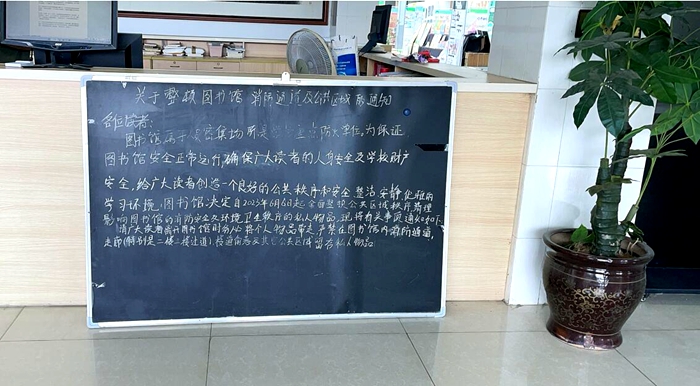 关于整顿图书馆消防通道及公共区域的通知
各位读者：
图书馆属于 密集场所 防火单位，为保证
图书馆安全正常运行，确保广大读者的人身安全及学校财产
安全，给广大读者创造一个良好的公共秩序和安全、整洁、安静、优雅的
学习环境，图书馆决定自2023年6月6日起，全面整顿公共区域秩序，清理
影响图书馆的消防安全及环境卫生秩序的私人物品，现将有关事项通知如下，
请广大读者离开图书馆时务必将个人物品带走，严禁在图书馆内消防通道，
走廊（特别是二楼三楼过道）、楼通 及其它公共区域留存私人物品